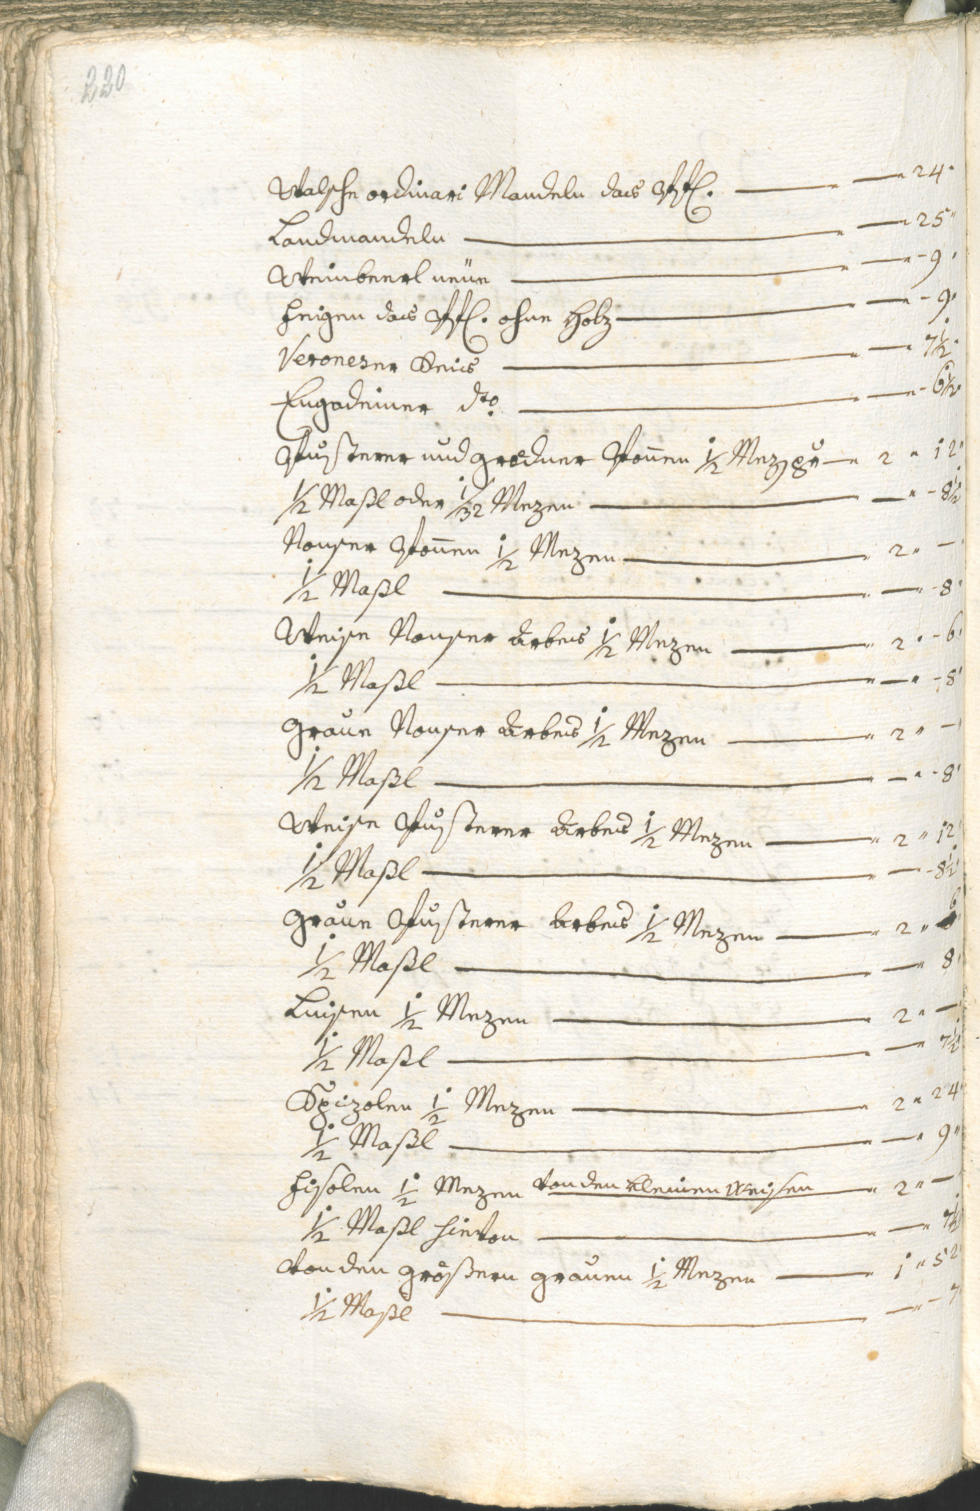 220
Walsche ordinari Mandeln das Pf. — — 24.
Landmandeln — — 25"
Weinbeerl neue — — - 9.
Feigen das Pf. ohne Holz — — - 9.
Veroneser Reiis — — 7½.
Engadeiner dto. — — - 6½.
Pusterer und grödner Ponen ½ Mezen — 2 " 12"
½ Maßl oder 1/32 Mezen — — " - 8½
Nonser Ponen ½ Mezen — 2 " —
½ Maßl — — " - 8"
Weise Nonser Arbeis ½ Mezen — " 2 " - 6"
½ Maßl — " — " - 8"
Graue Nonser Arbeis ½ Mezen — " 2 " —
½ Maßl — " — " - 8"
Weise Pusterer Arbeis ½ Mezen — " 2 " 12"
½ Maßl — " — - 8½
Graue Pusterer Arbeis ½ Mezen — " 2 " 6
½ Maßl — " — " 8"
Linsen ½ Mezen — " 2 " —
½ Maßl — " — " 7½
½ Mezen — " 2 " 24"
½ Maßl — " — " 9"
Fisolen ½ Mezen von den kleinen Weisen — " 2 " —
½ Maßl hievon — " — " 7½
von den größern grauen ½ Mezen — " 1 " 52
½ Maßl — " — " - 7